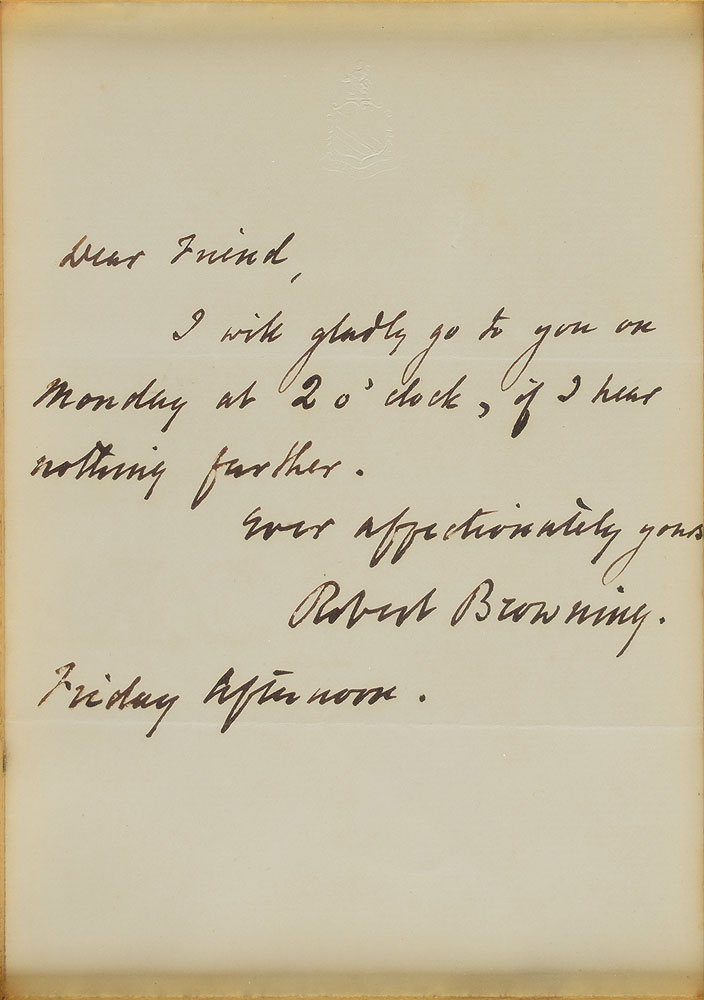 Dear Friend,
I will gladly go to you on
Monday at 2 o'clock, if I hear
nothing further.
Ever affectionately yours
Robert Browning.
Friday Afternoon.